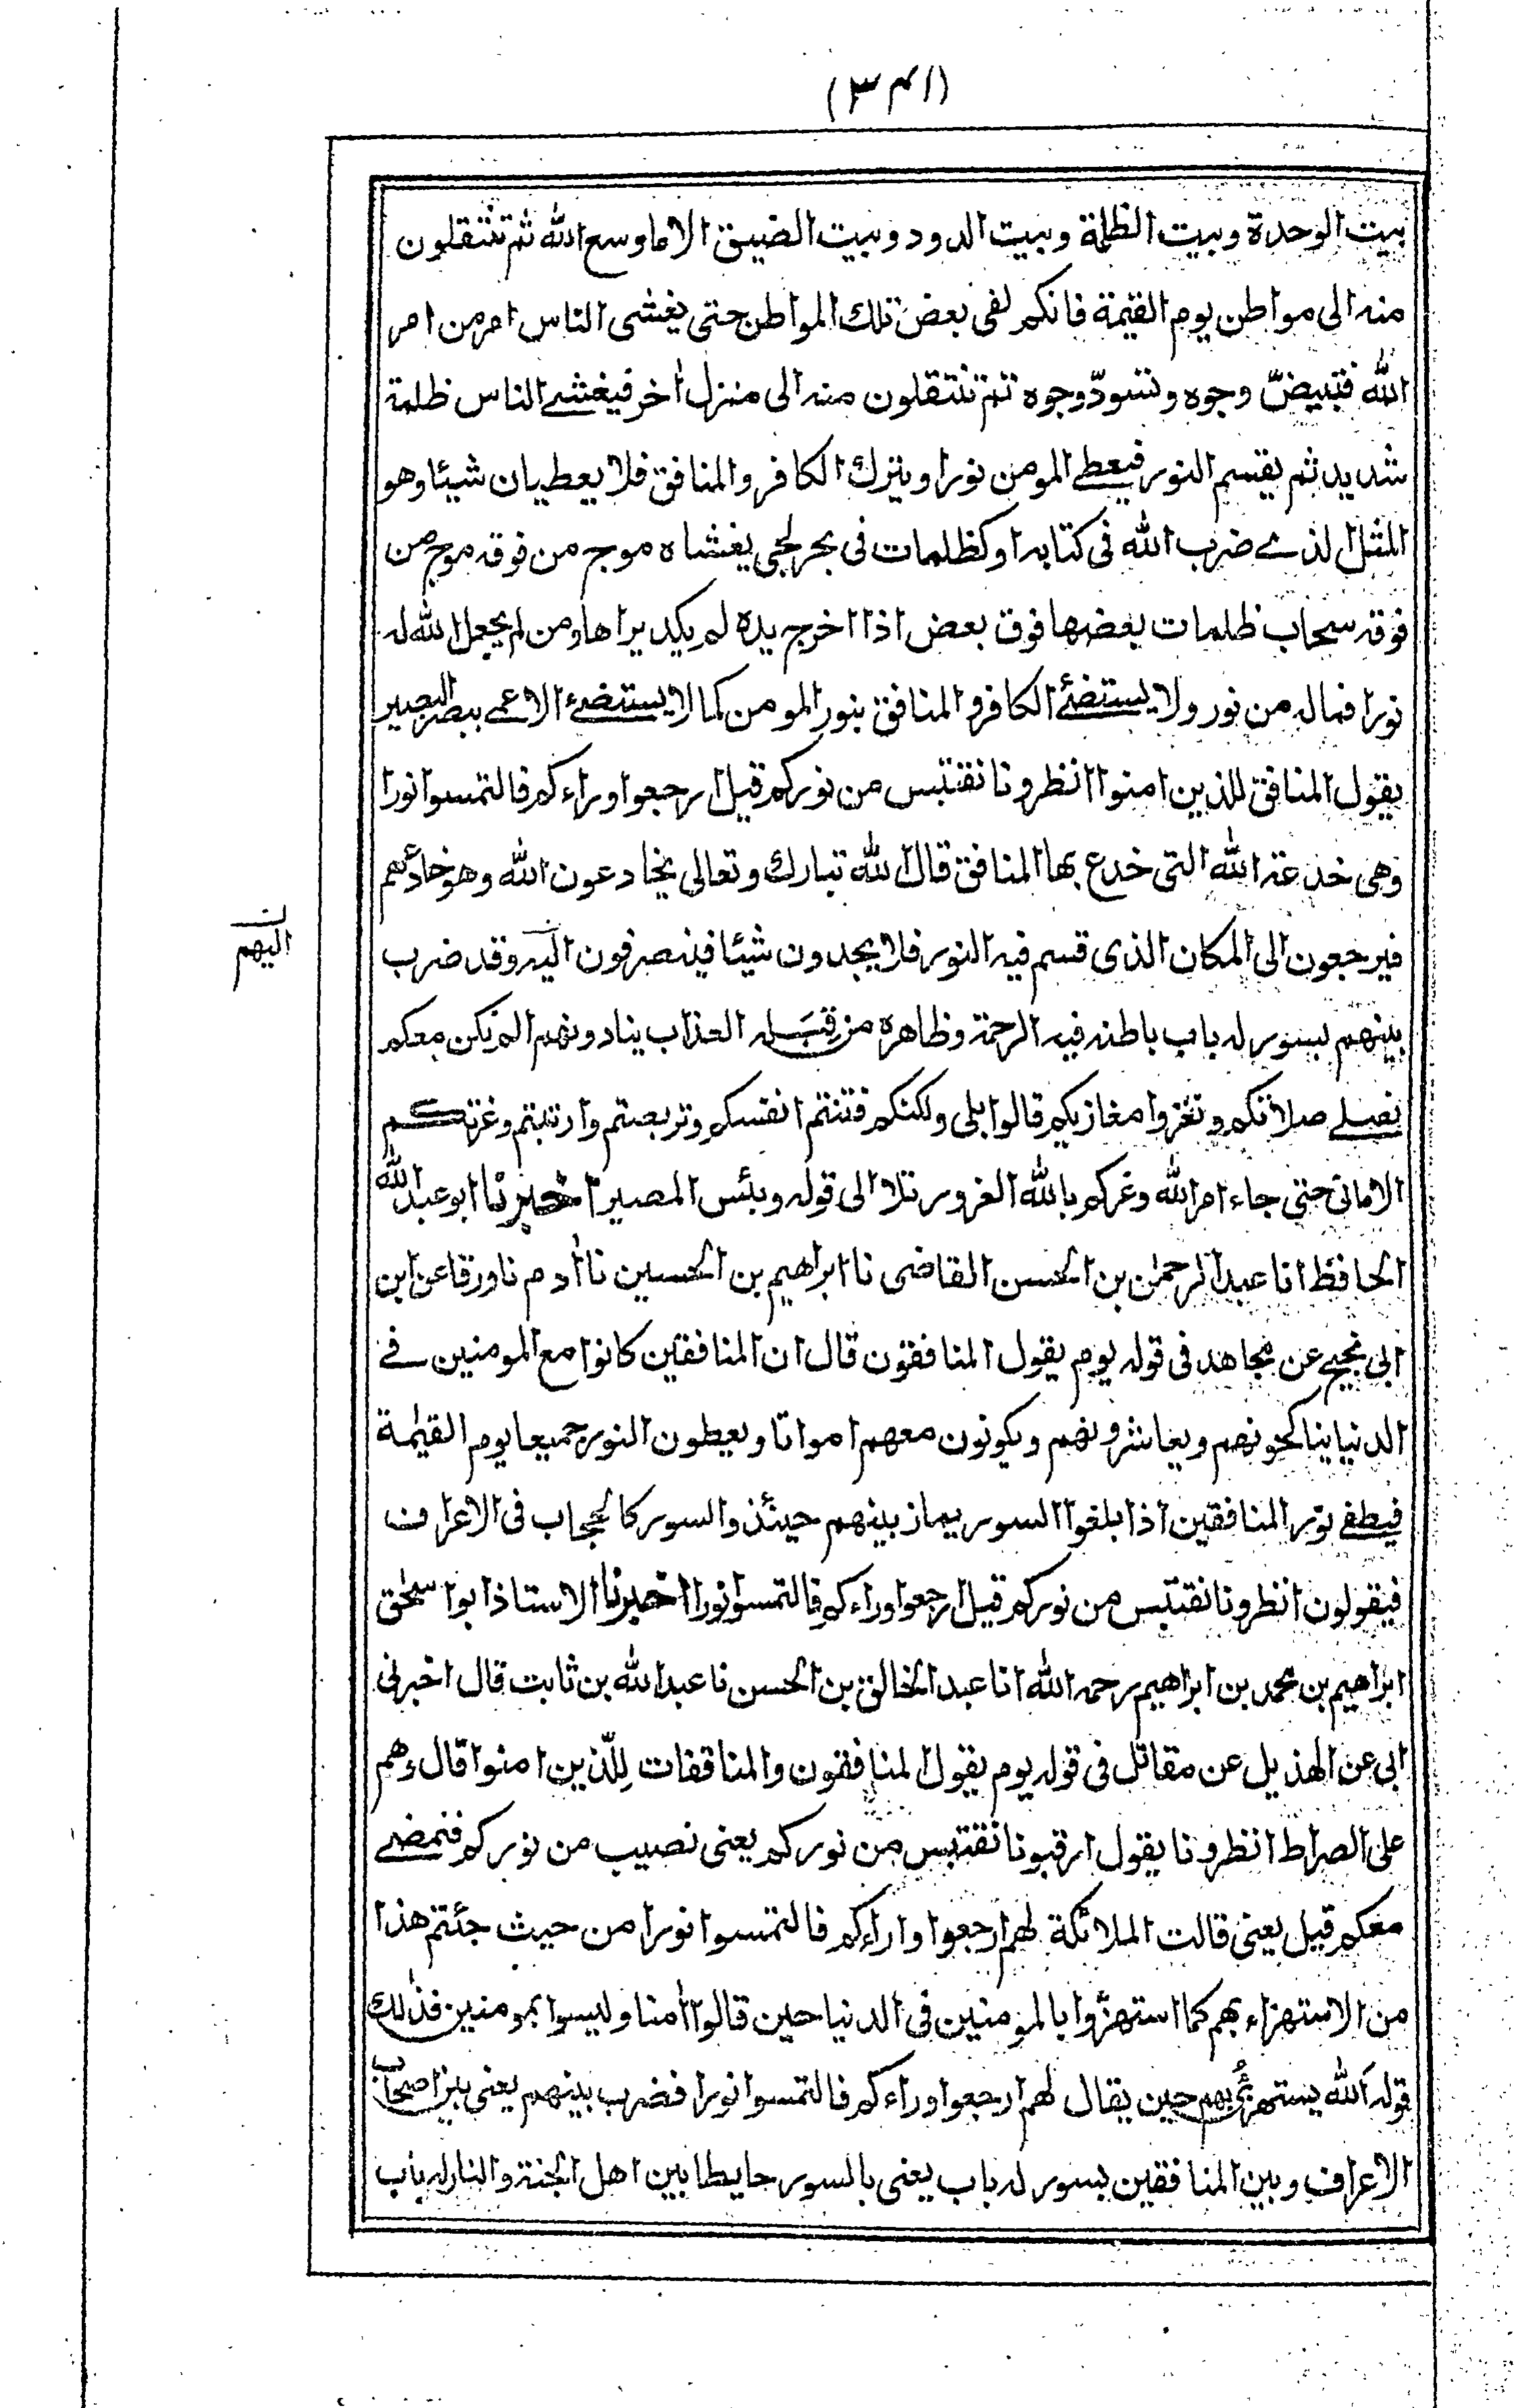 (٣٤١)
بيت الوحدة وبيت الظلمة وبيت الدود وبيت الضيق الاما وسع الله ثم تنتقلون
منه الى مواطن يوم القيمة فانكم لفى بعض تلك المواطن حتى يغشى الناس امر من امر
الله فتبيضّ وجوه وتسودّ وجوه ثم تنتقلون منه الى منزل اٰخر فيغشے الناس ظلمة
شديد ثم يقسم النور فيعطے المومن نورا ويترك الكافر والمنافق فلا يعطيان شيئا وهو
المثل الذے ضرب الله فى كتابه او كظلمات فى بحر لجى يغشاه موج من فوقه موج من
فوقه سحاب ظلمات بعضها فوق بعض اذا اخرج يده لم يكد يراها ومن لم يجعل الله له
نورا فماله من نور ولا يستضئے الكافر والمنافق بنور المومن كما لا يستضئے الاعمے ببصر البصير
يقول المنافق للذين امنوا انظرونا نقتبس من نوركم قيل ارجعوا وراءكم فالتمسوا نورا
وهى خدعة الله التى خدع بها المنافق قال الله تبارك وتعالى يخادعون الله وهو خادعهم
فيرجعون الى المكان الذى قسم فيه النور فلا يجدون شيئا فينصرفون اليه وقد ضرب
ن
اليهم
بينهم بسور له باب باطنه فيه الرحمة وظاهره من قِبَله العذاب ينادونهم الم نكن معكم
نصلے صلاتكم ونغزوا مغازيكم قالوا بلى ولكنكم فتنتم انفسكم وتربصتم وارتبتم وغرتكم
الامانى حتى جاء امر الله وغركم بالله الغرور تلا الى قوله وبئس المصير اخبرنا ابو عبد الله
الحافظ انا عبد الرحمٰن بن الحسن القاضى نا ابراهيم بن الحسين نا اٰدم نا ورقا عن ابن
ابى نجيح عن مجاهد فى قوله يوم يقول المنافقون قال ان المنافقين كانوا مع المومنين فے
الدنيا يناكحونهم ويعاشرونهم ويكونون معهم امواتا ويعطون النور جميعا يوم القيٰمة
فيطفے نور المنافقين اذا بلغوا السور يماز بينهم حينئذ والسور كالحجاب فى الاعراف
فيقولون انظرونا نقتبس من نوركم قيل ارجعوا وراءكم فالتمسوا نورا اخبرنا الاستاذ ابو اسحٰق
ابراهيم بن محمد بن ابراهيم رحمه الله انا عبد الخالق بن الحسن نا عبد الله بن ثابت قال اخبرنى
ابى عن الهذيل عن مقاتل فى قوله يوم يقول المنافقون والمنافقات لِلّذين امنوا قال وهم
على الصراط انظرونا يقول ارقبونا نقتبس من نوركم يعنى نصيب من نوركم فنمضے
معكم قيل يعنى قالت الملائكة لهم ارجعوا واراءكم فالتمسوا نورا من حيث جئتم هذا
من الاستهزاء بهم كما استهزؤا بالمومنين فى الدنيا حين قالوا اٰمنا وليسوا بمومنين فذٰلك
قوله الله يستهزئ بهم حين يقال لهم ارجعوا وراءكم فالتمسوا نورا فضرب بينهم يعنى بين اصحاب
الاعراف وبين المنافقين بسور له باب يعنى بالسور حايطا بين اهل الجنة والنار له باب